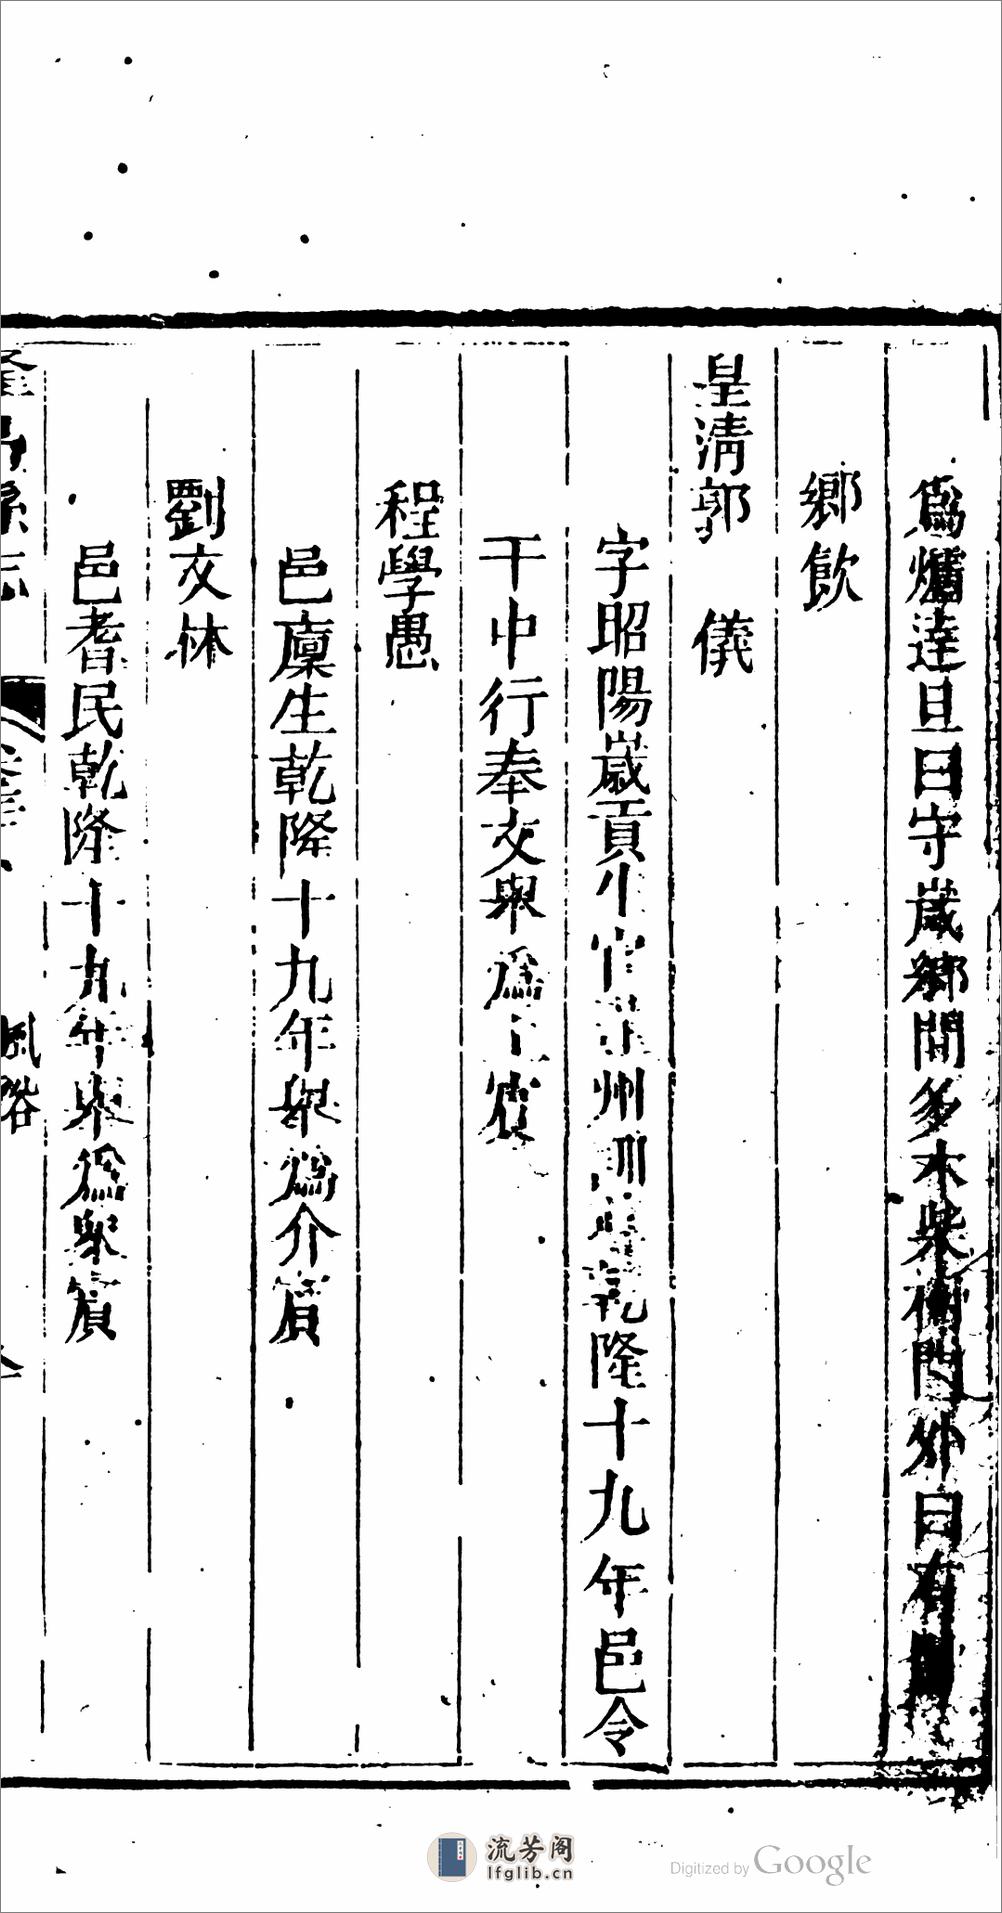 爲爐達旦曰守歲鄉間多木柴衛門外曰有
鄉飲
皇淸郭 儀
字昭陽歲貢生官州訓乾隆十九年邑令
干中行奉文舉爲賓
程學愚
邑廩生乾隆十九年舉爲介賓
劉文林
邑耆民乾隆十九年舉爲衆賓
風俗
流芳阁
lfglib.cn
Digitized by Google